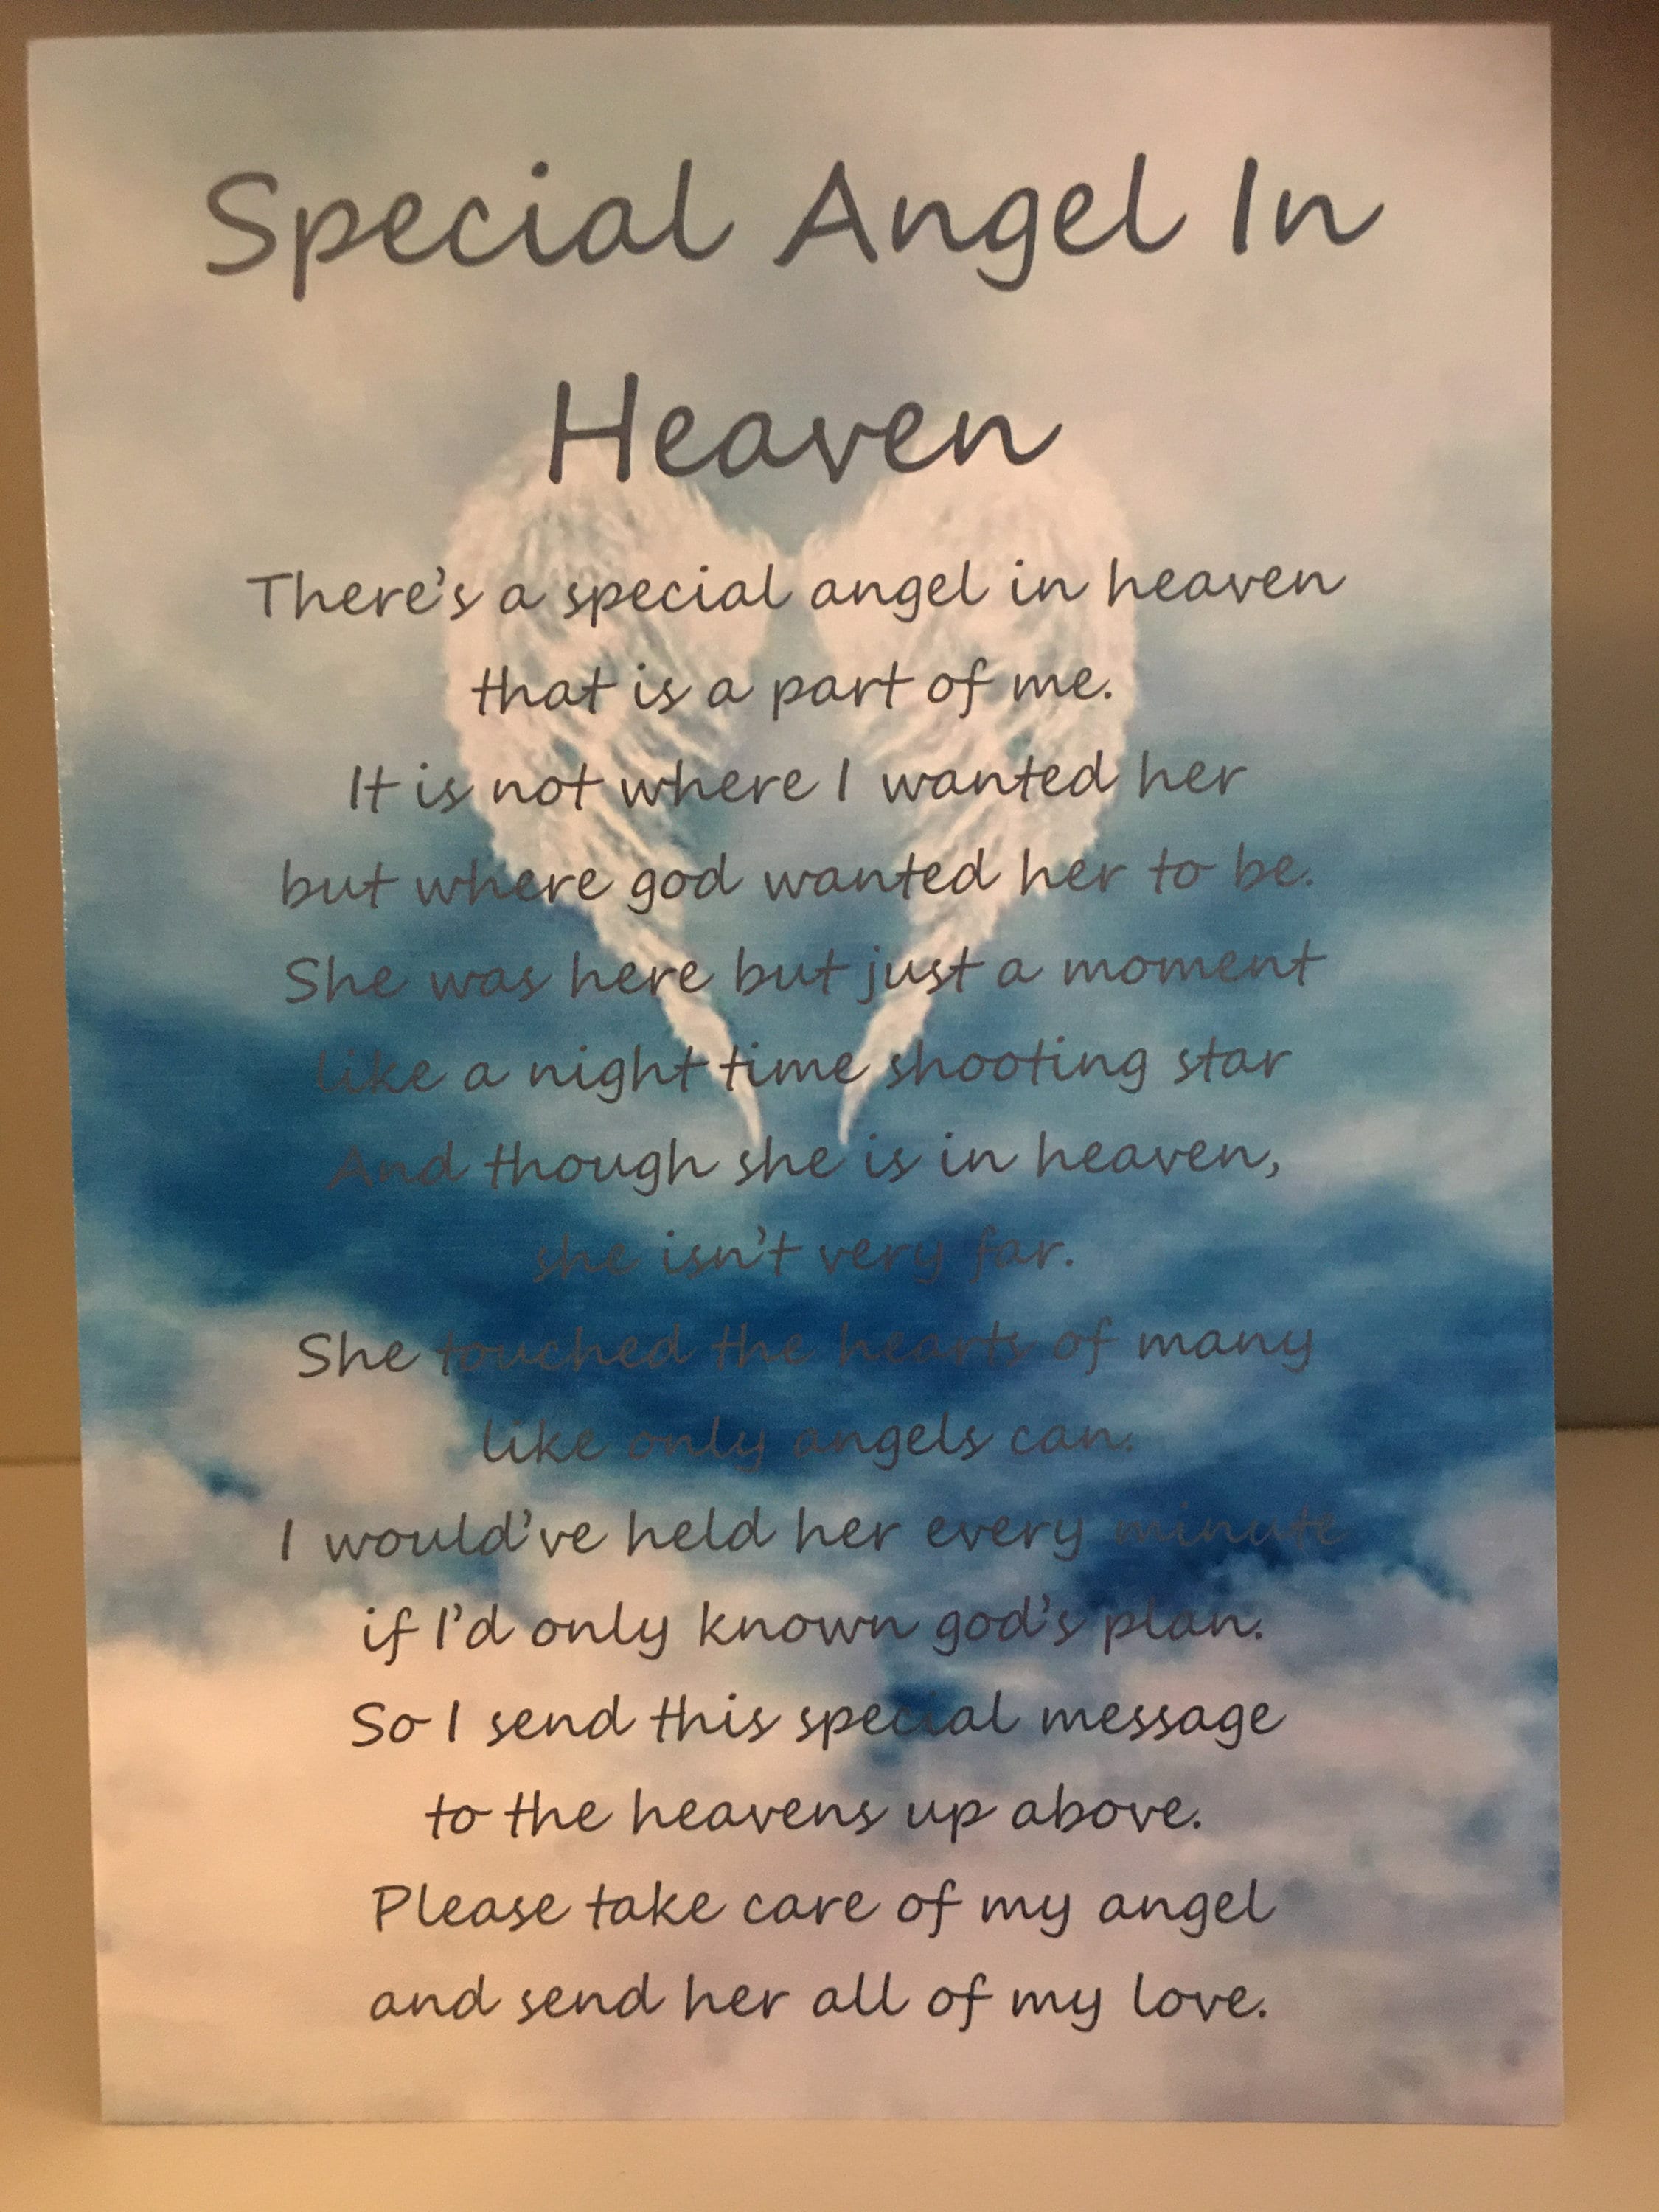 Special Angel In
Heaven
There's a special angel in heaven
that is a part of me.
It is not where I wanted her
but where god wanted her to be.
She was here but just a moment
like a night time shooting star
And though she is in heaven,
she isn't very far.
She touched the hearts of many
like only angels can.
I would've held her every minute
if I'd only known god's plan.
So I send this special message
to the heavens up above.
Please take care of my angel
and send her all of my love.